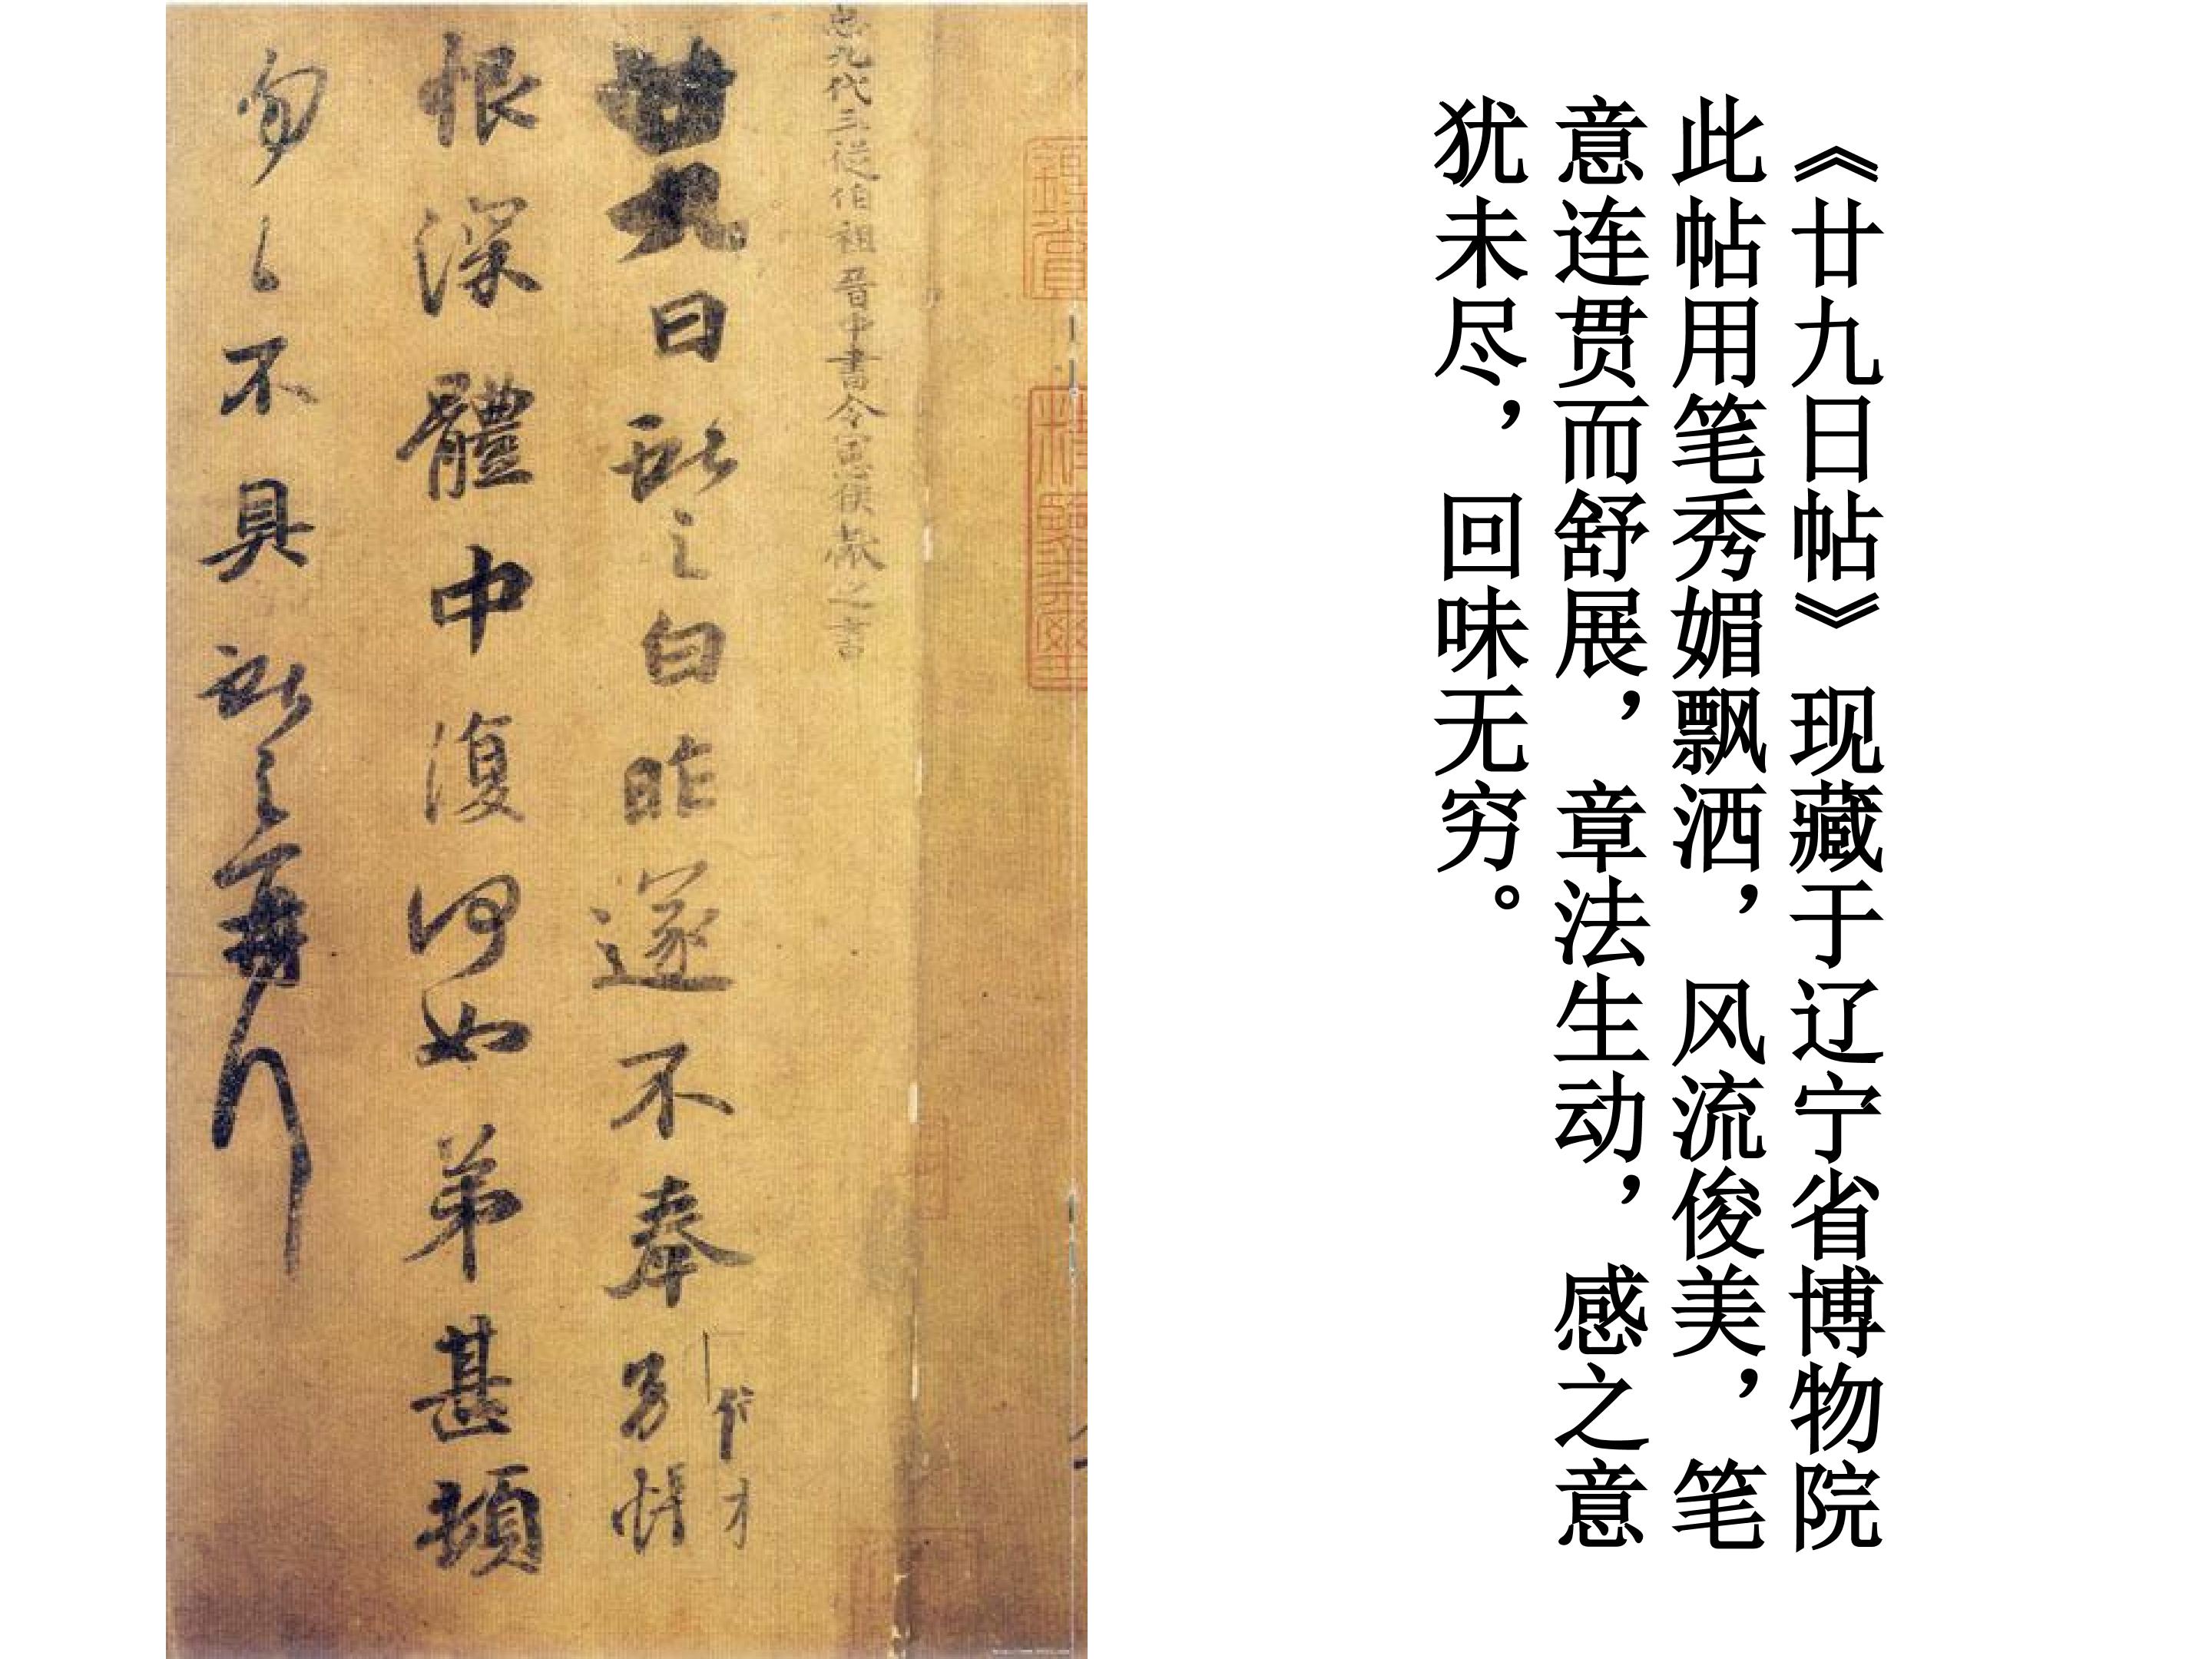 《廿九日帖》现藏于辽宁省博物院
此帖用笔秀媚飘洒，风流俊美，笔
意连贯而舒展，章法生动，感之意
犹未尽，回味无穷。
九代三從伯祖晉中書令憲侯獻之書
廿九日獻之白昨遂不奉別悵
恨深體中復何如弟甚頓
匆匆不具獻之再拜